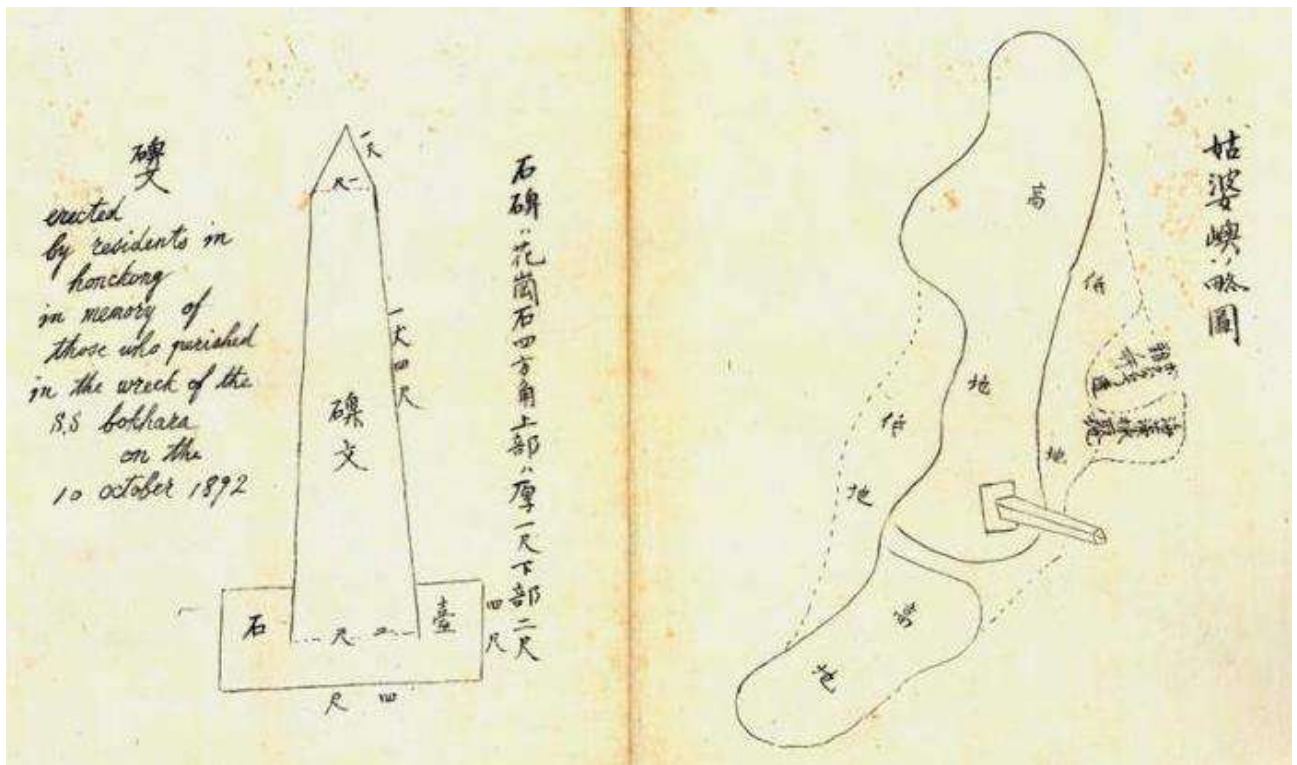 碑文
erected
by residents in
honckong
in memory of
those who perished
in the wreck of the
S.S bokhara
on the
10 october 1892
一尺
一尺
一丈四尺
碑文
石臺
二尺
四尺
四尺
石碑ハ花崗石四方角上部ハ厚一尺下部二尺
姑婆嶼略圖
高地
低地
低地
高地